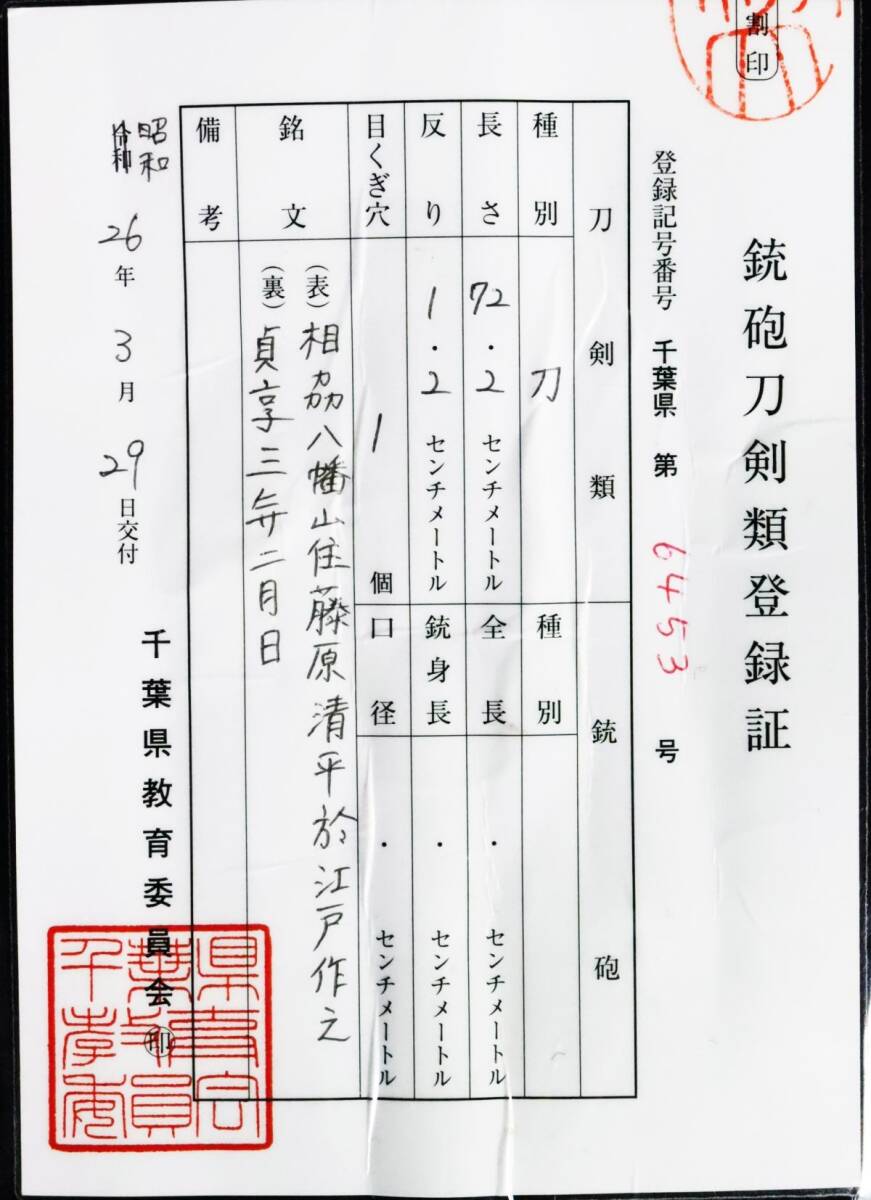 割印
銃砲刀剣類登録証
登録記号番号 千葉県 第 6453 号
刀剣類
銃砲
種別 刀
種別
長さ 72.2 センチメートル
全長 . センチメートル
反り 1.2 センチメートル
銃身長 . センチメートル
目くぎ穴 1 個
口径 . センチメートル
銘文
(表)相州八幡山住藤原清平於江戸作之
(裏)貞享三年二月日
備考
昭和
令和
26年3月29日交付
千葉県教育委員会 印